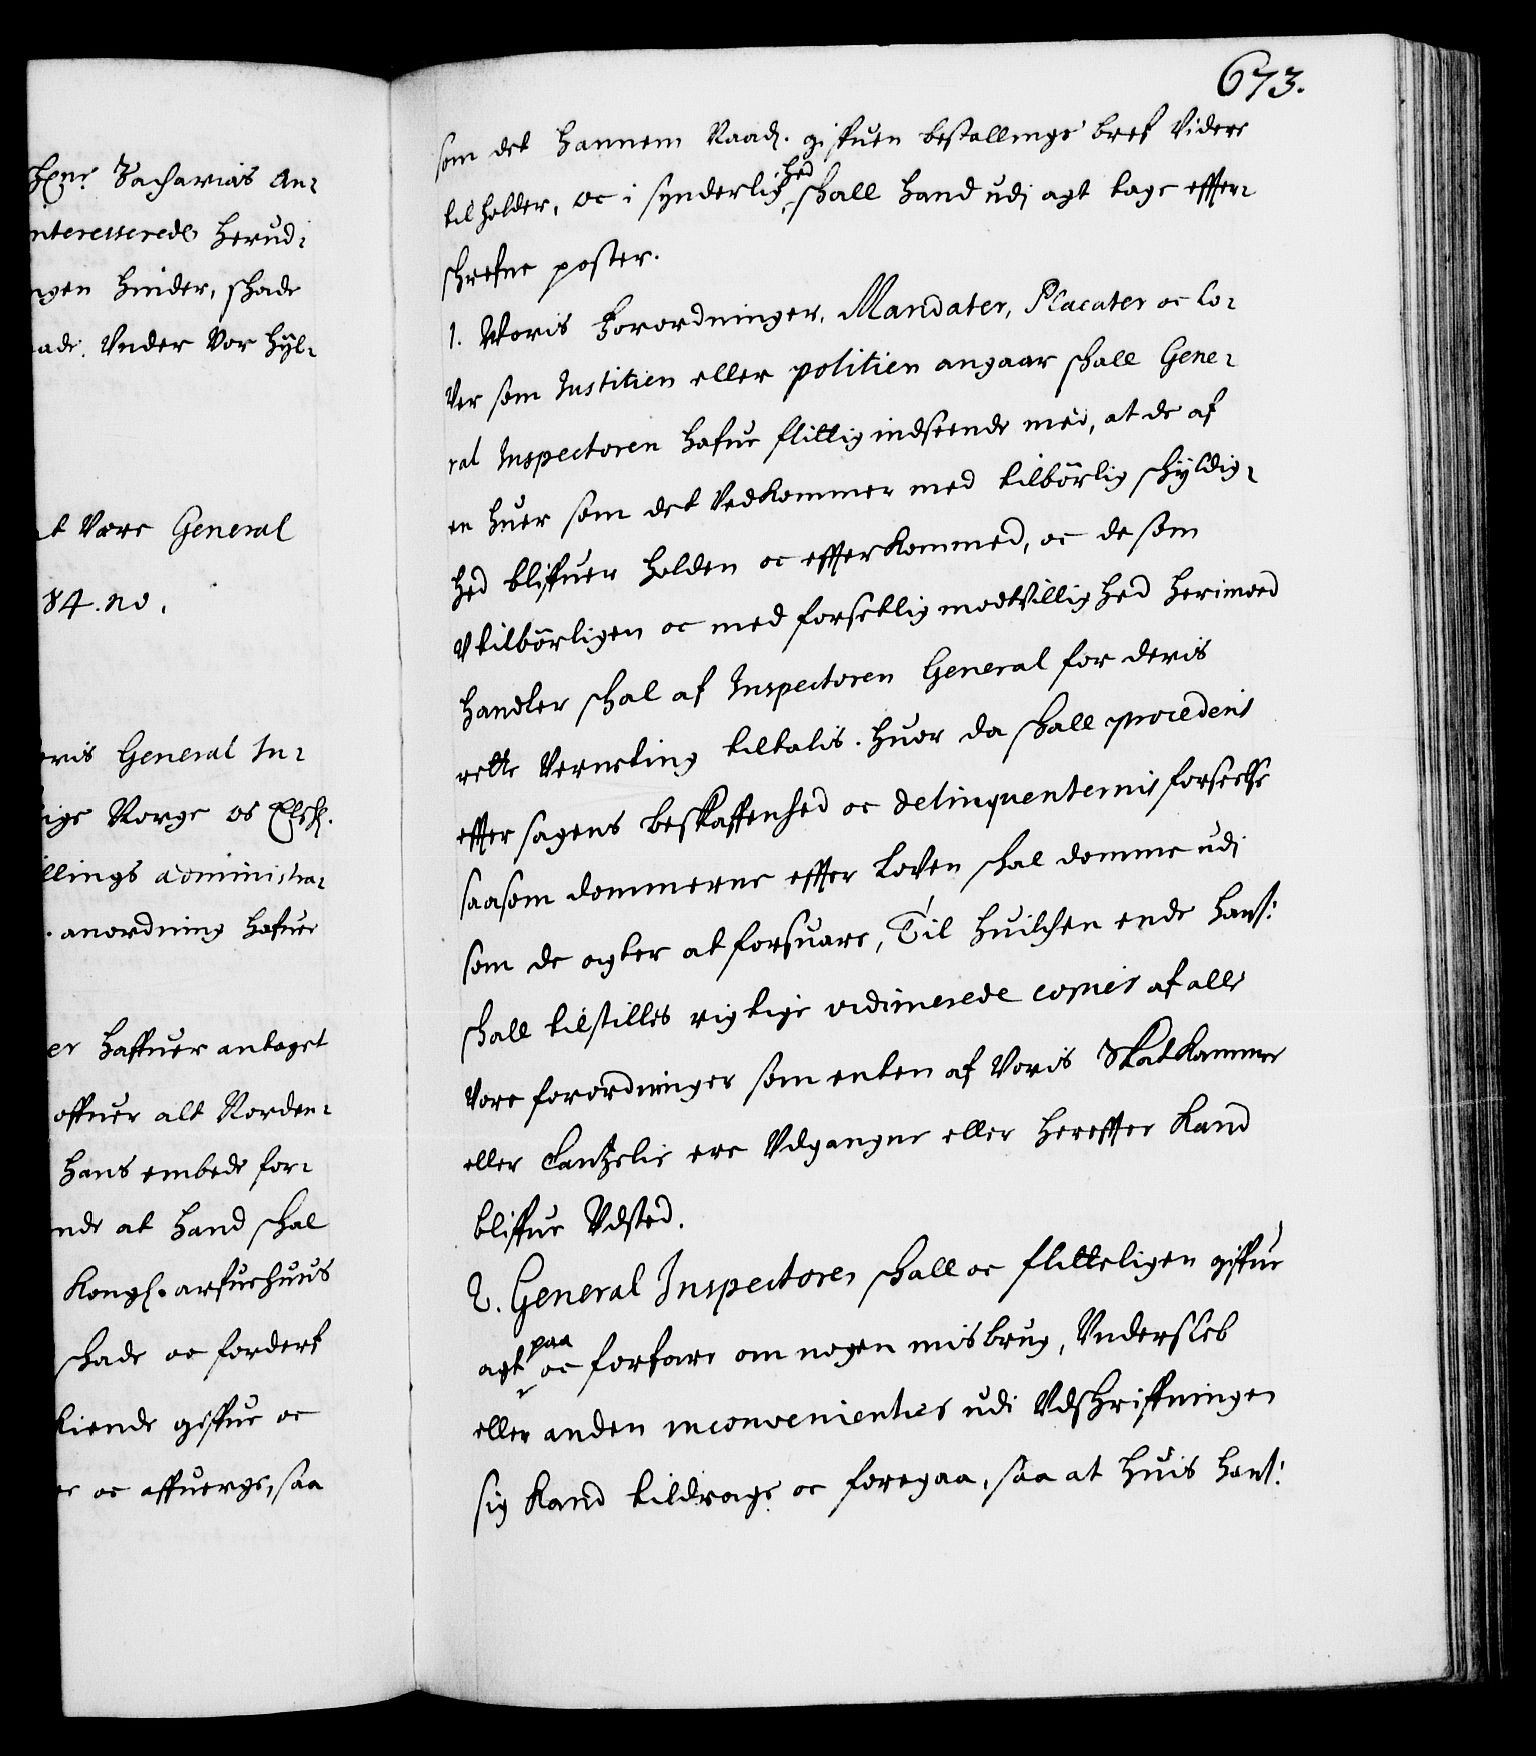 Zacharias An⸗
nteresserede herud⸗
ngen hinder, skade
ade. Vnder Vor Hyl⸗
t Være General
84. no.
oris General In⸗
ige Norge os Elsk.
llings administra⸗
. anordning hafuer
er haffuer antaget
offuer alt Norden⸗
hans embede for⸗
nde at hand skal
Kongl. arfuehuus
skade oc fordert
kiende giffue oc
oc affuerge, saa
673.
som det hannem Naad. gifuen bestallings bref Videre
tilholder, oc i synderlighed, skall hand udj agt tage effter⸗
skrefne poster.
1. Woris Forordninger, Mandater, Placater oc Lo⸗
Ver som Justitien eller politien angaar skall Gene⸗
ral Inspectoren hafue flittig indseende med, at de af
en huer som det Vedkommer med tilbörlig skyldig⸗
hed bliffuer holden oc effterkommed, oc de som
Vtilbörligen oc med forsetlig modtvillighed herimoed
handler skal af Inspectoren General for deris
rette Verneting tiltalis. Huor da skall procederis
effter sagens beskaffenhed oc delinquenternis forseelse
saasom dommerne effter Loven skal domme udj
som de agter at forsuare, Til huilchen ende hans:
skall tilstilles rigtige vidimerede copier af alle
Vore forordninger som enten af Voris Skatkammer
eller Cantzelie ere Udgangne eller hereffter kand
bliffue Udsted.
2. General Inspectoren skall oc flitteligen giffue
agt paa oc forfare om nogen misbrug, Vnderslef
eller anden inconvenienties udi Udskriffningen
sig kand tildrage oc foregaa, saa at huis hans: